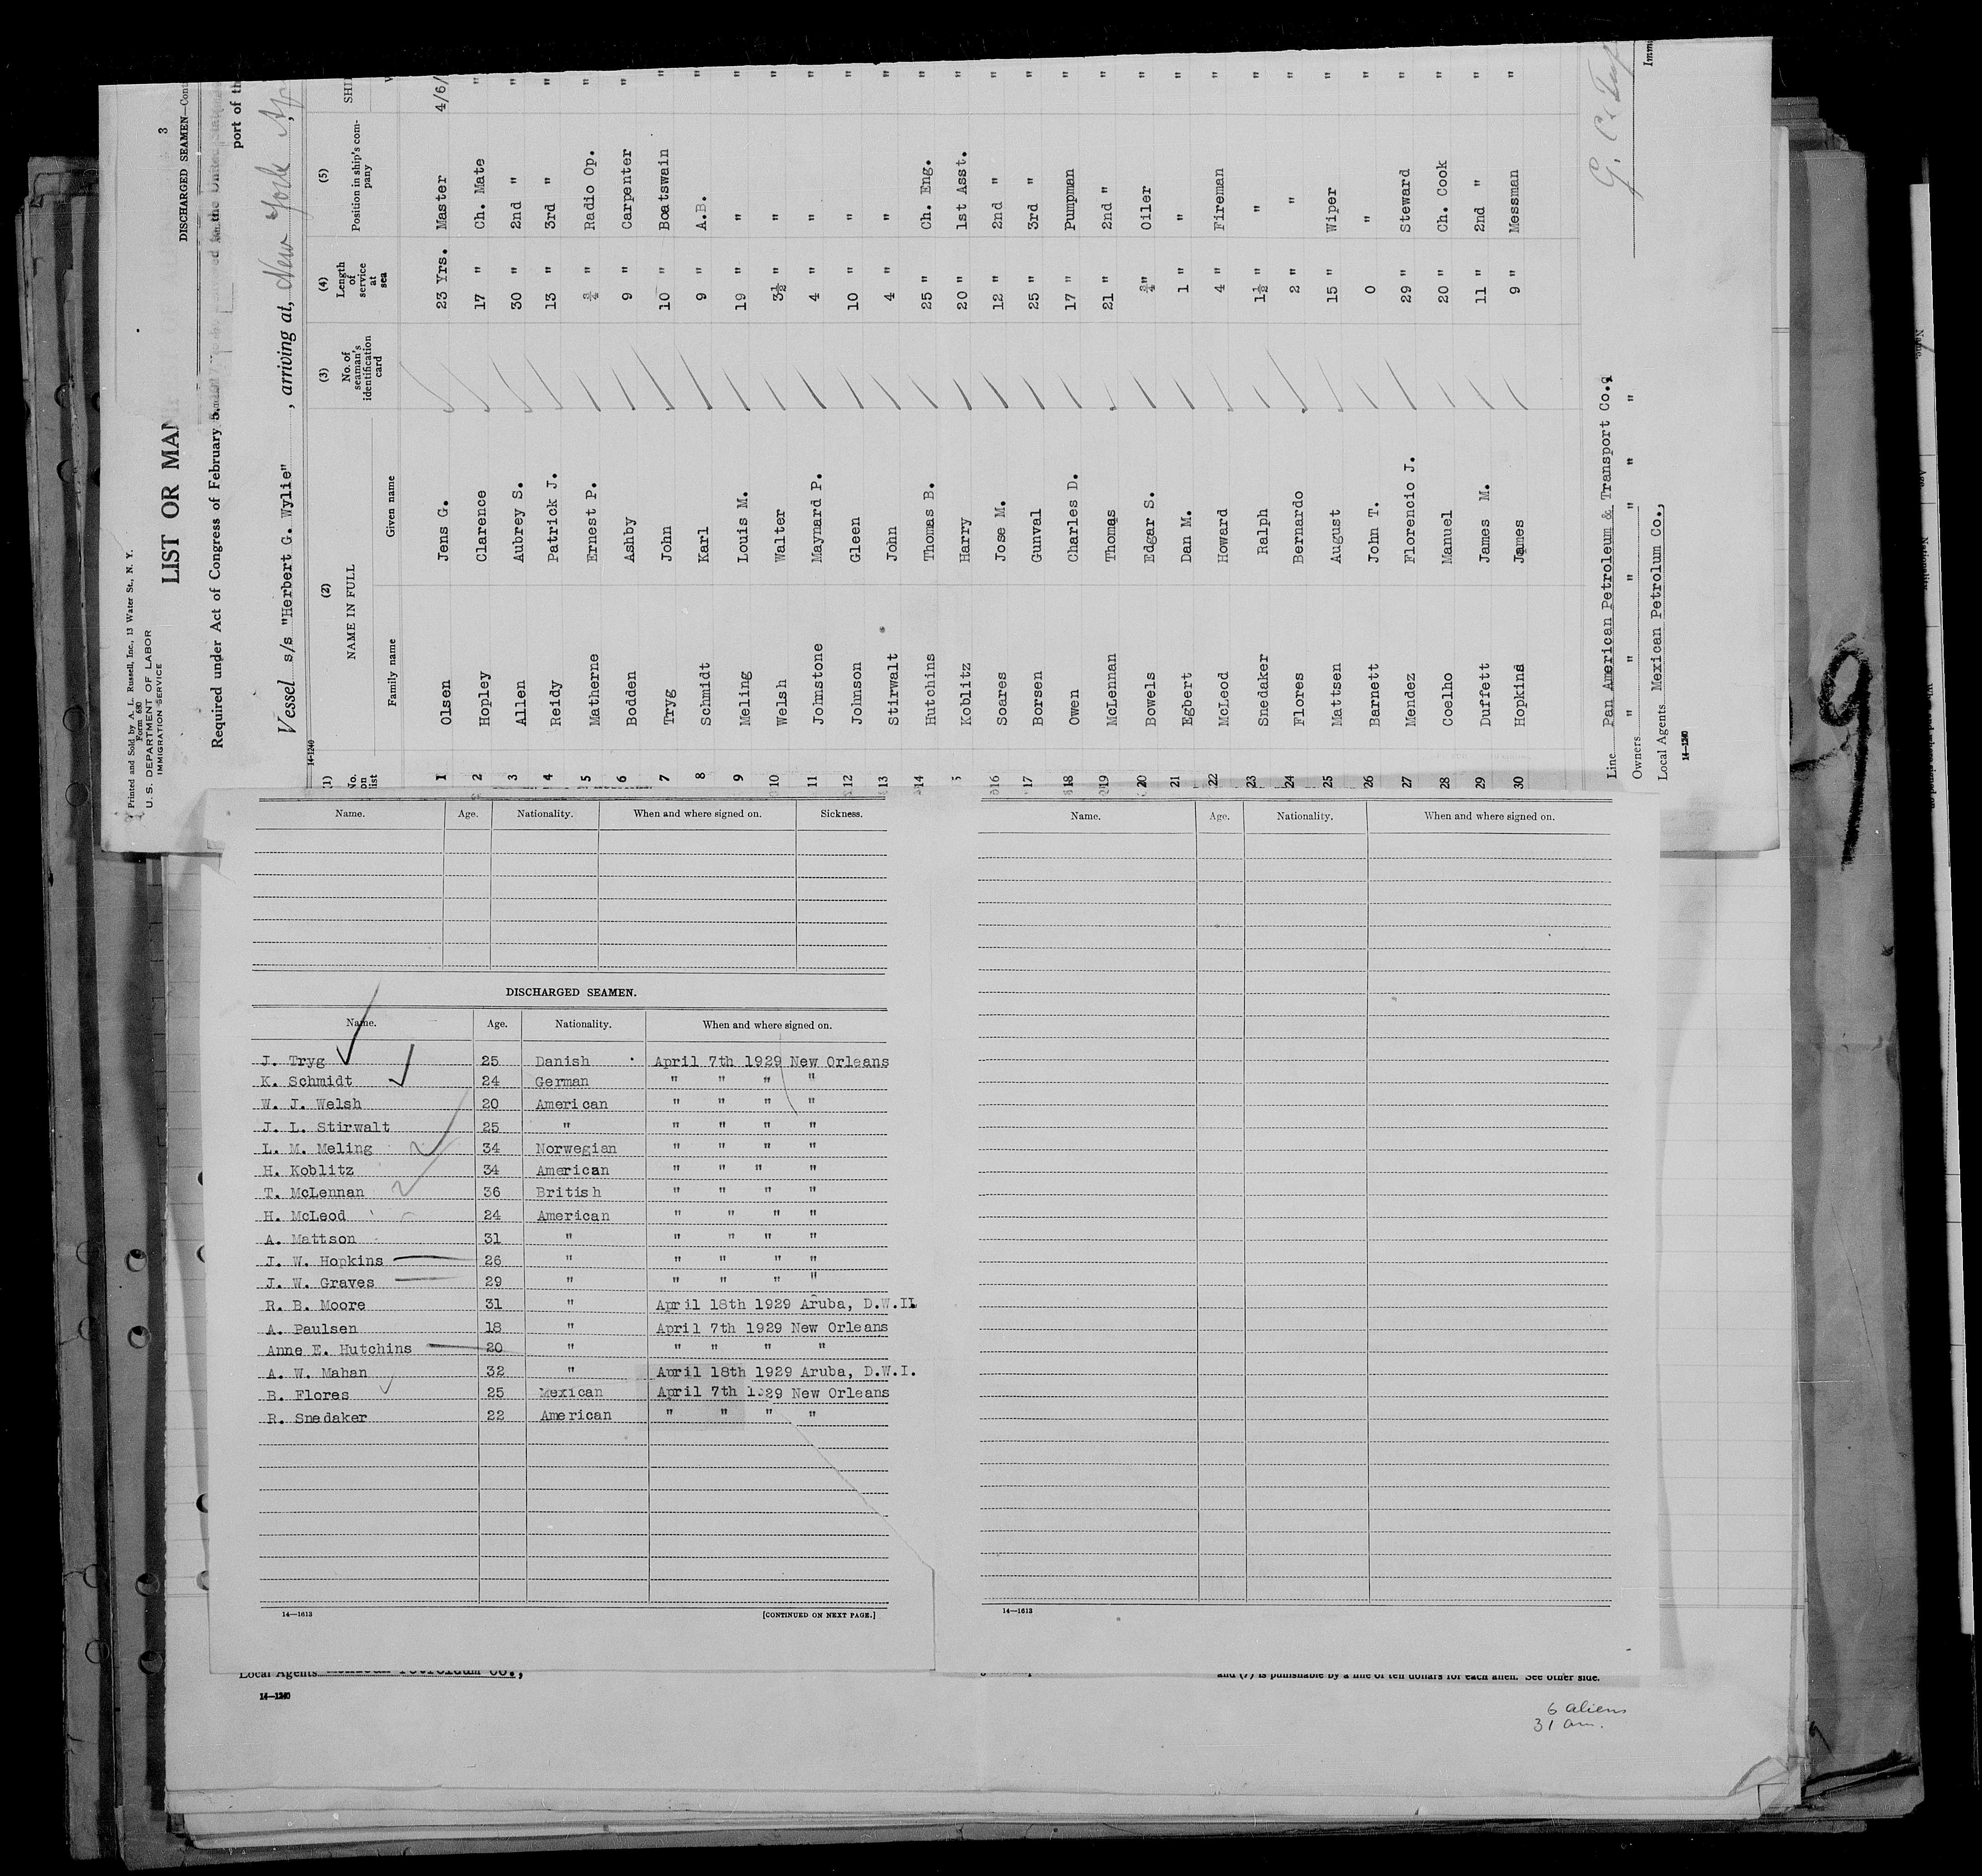 Printed and Sold by A. L. Russell, Inc., 13 Water St., N. Y.
Form 680
U. S. DEPARTMENT OF LABOR
IMMIGRATION SERVICE
3
LIST OR MAN
DISCHARGED SEAMEN—Cont
Required under Act of Congress of February 5,
port of th
Vessel s/s "Herbert G. Wylie" , arriving at, New York Ap
14-1240
(1) (2) (3) (4) (5)
No. on list NAME IN FULL No. of seaman's identification card Length of service at sea Position in ship's company SHI
Family name Given name
1 Olsen Jens G. 23 Yrs. Master 4/6/
2 Hopley Clarence 17 " Ch. Mate "
3 Allen Aubrey S. 30 " 2nd " "
4 Reidy Patrick J. 13 " 3rd " "
5 Matherne Ernest P. ¾ " Radio Op. "
6 Bodden Ashby 9 " Carpenter "
7 Tryg John 10 " Boatswain "
8 Schmidt Karl 9 " A.B. "
9 Meling Louis M. 19 " " "
10 Welsh Walter 3½ " " "
11 Johnstone Maynard P. 4 " " "
12 Johnson Gleen 10 " " "
13 Stirwalt John 4 " " "
14 Hutchins Thomas B. 25 " Ch. Eng. "
5 Koblitz Harry 20 " 1st Asst. "
16 Soares Jose M. 12 " 2nd " "
17 Borsen Gunval 25 " 3rd " "
18 Owen Charles D. 17 " Pumpman "
19 McLennan Thomas 21 " 2nd " "
20 Bowels Edgar S. ¾ " Oiler "
21 Egbert Dan M. 1 " " "
22 McLeod Howard 4 " Fireman "
23 Snedaker Ralph 1½ " " "
24 Flores Bernardo 2 " " "
25 Mattsen August 15 " Wiper "
26 Barnett John T. 0 " " "
27 Mendez Florencio J. 29 " Steward "
28 Coelho Manuel 20 " Ch. Cook "
29 Duffett James M. 11 " 2nd " "
30 Hopkins James 9 " Messman "
Line Pan American Petroleum & Transport Co.,
Owners " " " " " "
Local Agents Mexican Petrolum Co.,
14-1240
Imm
Name. Age. Nationality. When and where signed on. Sickness.
DISCHARGED SEAMEN.
Name. Age. Nationality. When and where signed on.
J. Tryg 25 Danish April 7th 1929 New Orleans
K. Schmidt 24 German " " " "
W. J. Welsh 20 American " " " "
J. L. Stirwalt 25 " " " " "
L. M. Meling 34 Norwegian " " " "
H. Koblitz 34 American " " " "
T. McLennan 36 British " " " "
H. McLeod 24 American " " " "
A. Mattson 31 " " " " "
J. W. Hopkins 26 " " " " "
J. W. Graves 29 " " " " "
R. B. Moore 31 " April 18th 1929 Aruba, D.W.II
A. Paulsen 18 " April 7th 1929 New Orleans
Anne E. Hutchins 20 " " " " "
A. W. Mahan 32 " April 18th 1929 Aruba, D.W.I.
B. Flores 25 Mexican April 7th 1929 New Orleans
R. Snedaker 22 American " " " "
14—1613 [CONTINUED ON NEXT PAGE.]
Name. Age. Nationality. When and where signed on.
14—1613
Local Agents
and (7) is punishable by a fine of ten dollars for each alien. See other side.
14—1240
6 aliens
31 am.
9